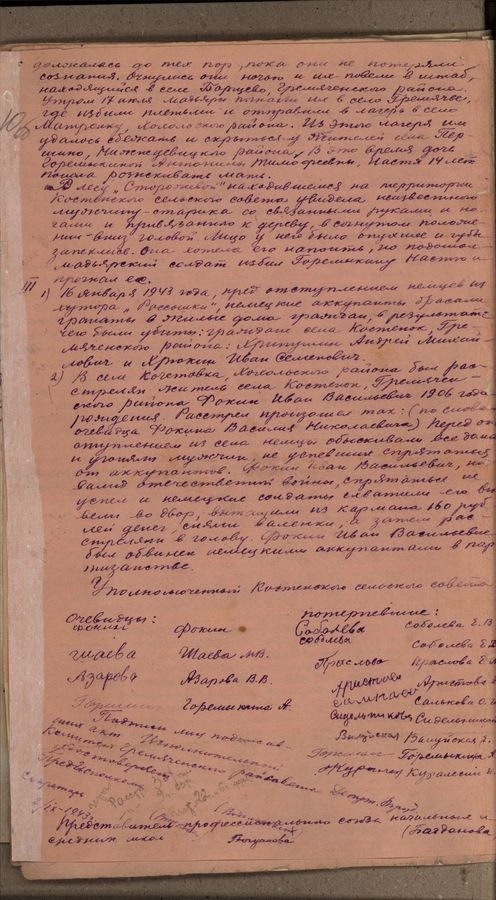 должалась до тех пор, пока они не потеряли
сознания. Очнулись они ночью и их повели в штаб,
находящийся в селе Борщево, Гремяченского района.
Утром 17 июля мадьяры погнали их в село Гремячье,
где избили плетьми и отправили в лагерь в село
Матренку, Хохольского района. Из этого лагеря им
удалось сбежать и скрыться у жителей села Пер-
шино, Нижнедевицкого района. В это время дочь
Горемыкиной Антонины Тимофеевны, Настя 14 лет
пошла разыскивать мать.
В лесу „Сторожевой" находившемся на территории
Костенского сельского совета увидела неизвестного
мужчину-старика со связанными руками и но-
гами и привязанного к дереву, в согнутом положе-
нии-вниз головой. Лицо у него было опухшее и губы
запеклись. Она хотела его напоить, но подошел
мадьярский солдат избил Горемыкину Настю и
прогнал ее.
106
III
1) 16 января 1943 года, пред отступлением немцев из
хутора „Россошки", немецкие аккупанты бросали
гранаты в жилые дома граждан, в результате
чего были убиты: граждане села Костенок, Гре-
мяченского района: Хрипушин Андрей Михай-
лович и Хрюкин Иван Семенович.
2) В селе Кочетовка, Хохольского района был рас-
стрелян житель села Костенок, Гремячен-
ского района Фокин Иван Васильевич 1906 года
рождения. Расстрел произошел так: (по словам
очевидца Фокина Василия Николаевича) Перед от-
ступлением из села немцы обыскивали все дома
и угоняли мужчин, не успевших спрятаться
от аккупантов. Фокин Иван Васильевич, ин-
валид отечественной войны, спрятаться не
успел и немецкие солдаты схватили его вы-
вели во двор, вытащили из кармана 160 руб-
лей денег, сняли валенки, а затем рас-
стреляли в голову. Фокин Иван Васильевич
был обвинен немецкими аккупантами в пар-
тизанстве.
Уполномоченный Костенского сельского совета
очевидцы: потерпевшие:
Фокин Соболева Соболева Е. В.
Шаева Шаева М.В. Соболева
Азарова Азарова В.В. Аристова
Горемыкина А. Салькова О.
Сидельников Сидельников
Вялуйская Валуйская
Горемыкина
Подписи лиц подписав-
ших акт Исполнительный
комитет Гремяченского райсовета Депут. Труд.
удостоверяет
Председатель
Секретарь
IX-1943
Представитель профессионального союза начальных и
средних школ Богданова (Богданова